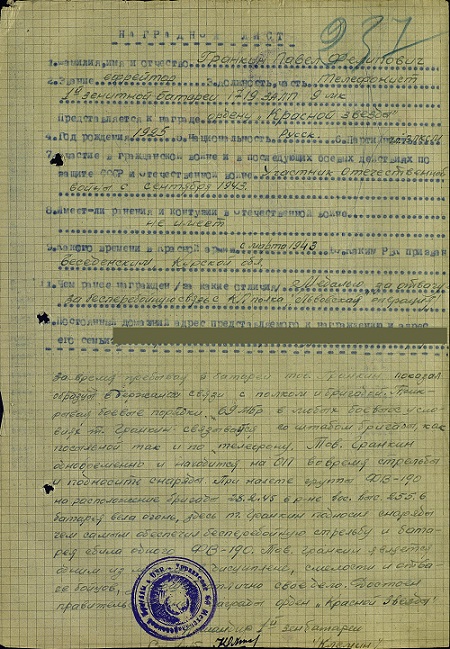 НАГРАДНОЙ ЛИСТ
237
1. Фамилия, имя и отчество Гранкин Павел Филипович
2. Звание ефрейтор 3. Должность, часть Телефонист
1й зенитной батареи 1719 ЗАП
представляется к награде ордену „Красной звезды"
4. Год рождения 1925 5. Национальность Русск. 6. Партийность
7. Участие в гражданской войне и в последующих боевых действиях по
защите СССР и отечественной войне Участник Отечественной
войны с сентября 1943.
8. Имеет-ли ранения и контузии в отечественной войне
не имеет
9. С какого времени в красной армии с марта 1943 10. Каким РВК призван
Беседенским Курской обл.
11. Чем ранее награжден /за какие отличия/ Медалью „за отвагу"
за бесперебойную связь с КП полка
12. Постоянный домашний адрес представляемого к награждению и адрес
его семьи
За время пребывания в батарее тов. Гранкин показал
образцы в держании связи с полком и бригадой.
боевые порядки 69 МБр в любых боевых усло-
виях т. Гранкин связывался со штабом бригады, как
посылкой так и по телефону. Тов. Гранкин
одновременно и находится на ОП во время стрельбы
и подносит снаряды. При налете группы ФВ-190
на расположение бригады 23.2.45 в р-не выс. 255.6
батарея вела огонь, здесь т. Гранкин подносил снаряды
тем самым обеспечил бесперебойную стрельбу и бата-
рея сбила одного ФВ-190. Тов. Гранкин является
одним из смелости и отва
бойцов, отлично свое дело. Достоин
правительственной награды орден „Красной Звезды"
Командир 1й зен. батареи